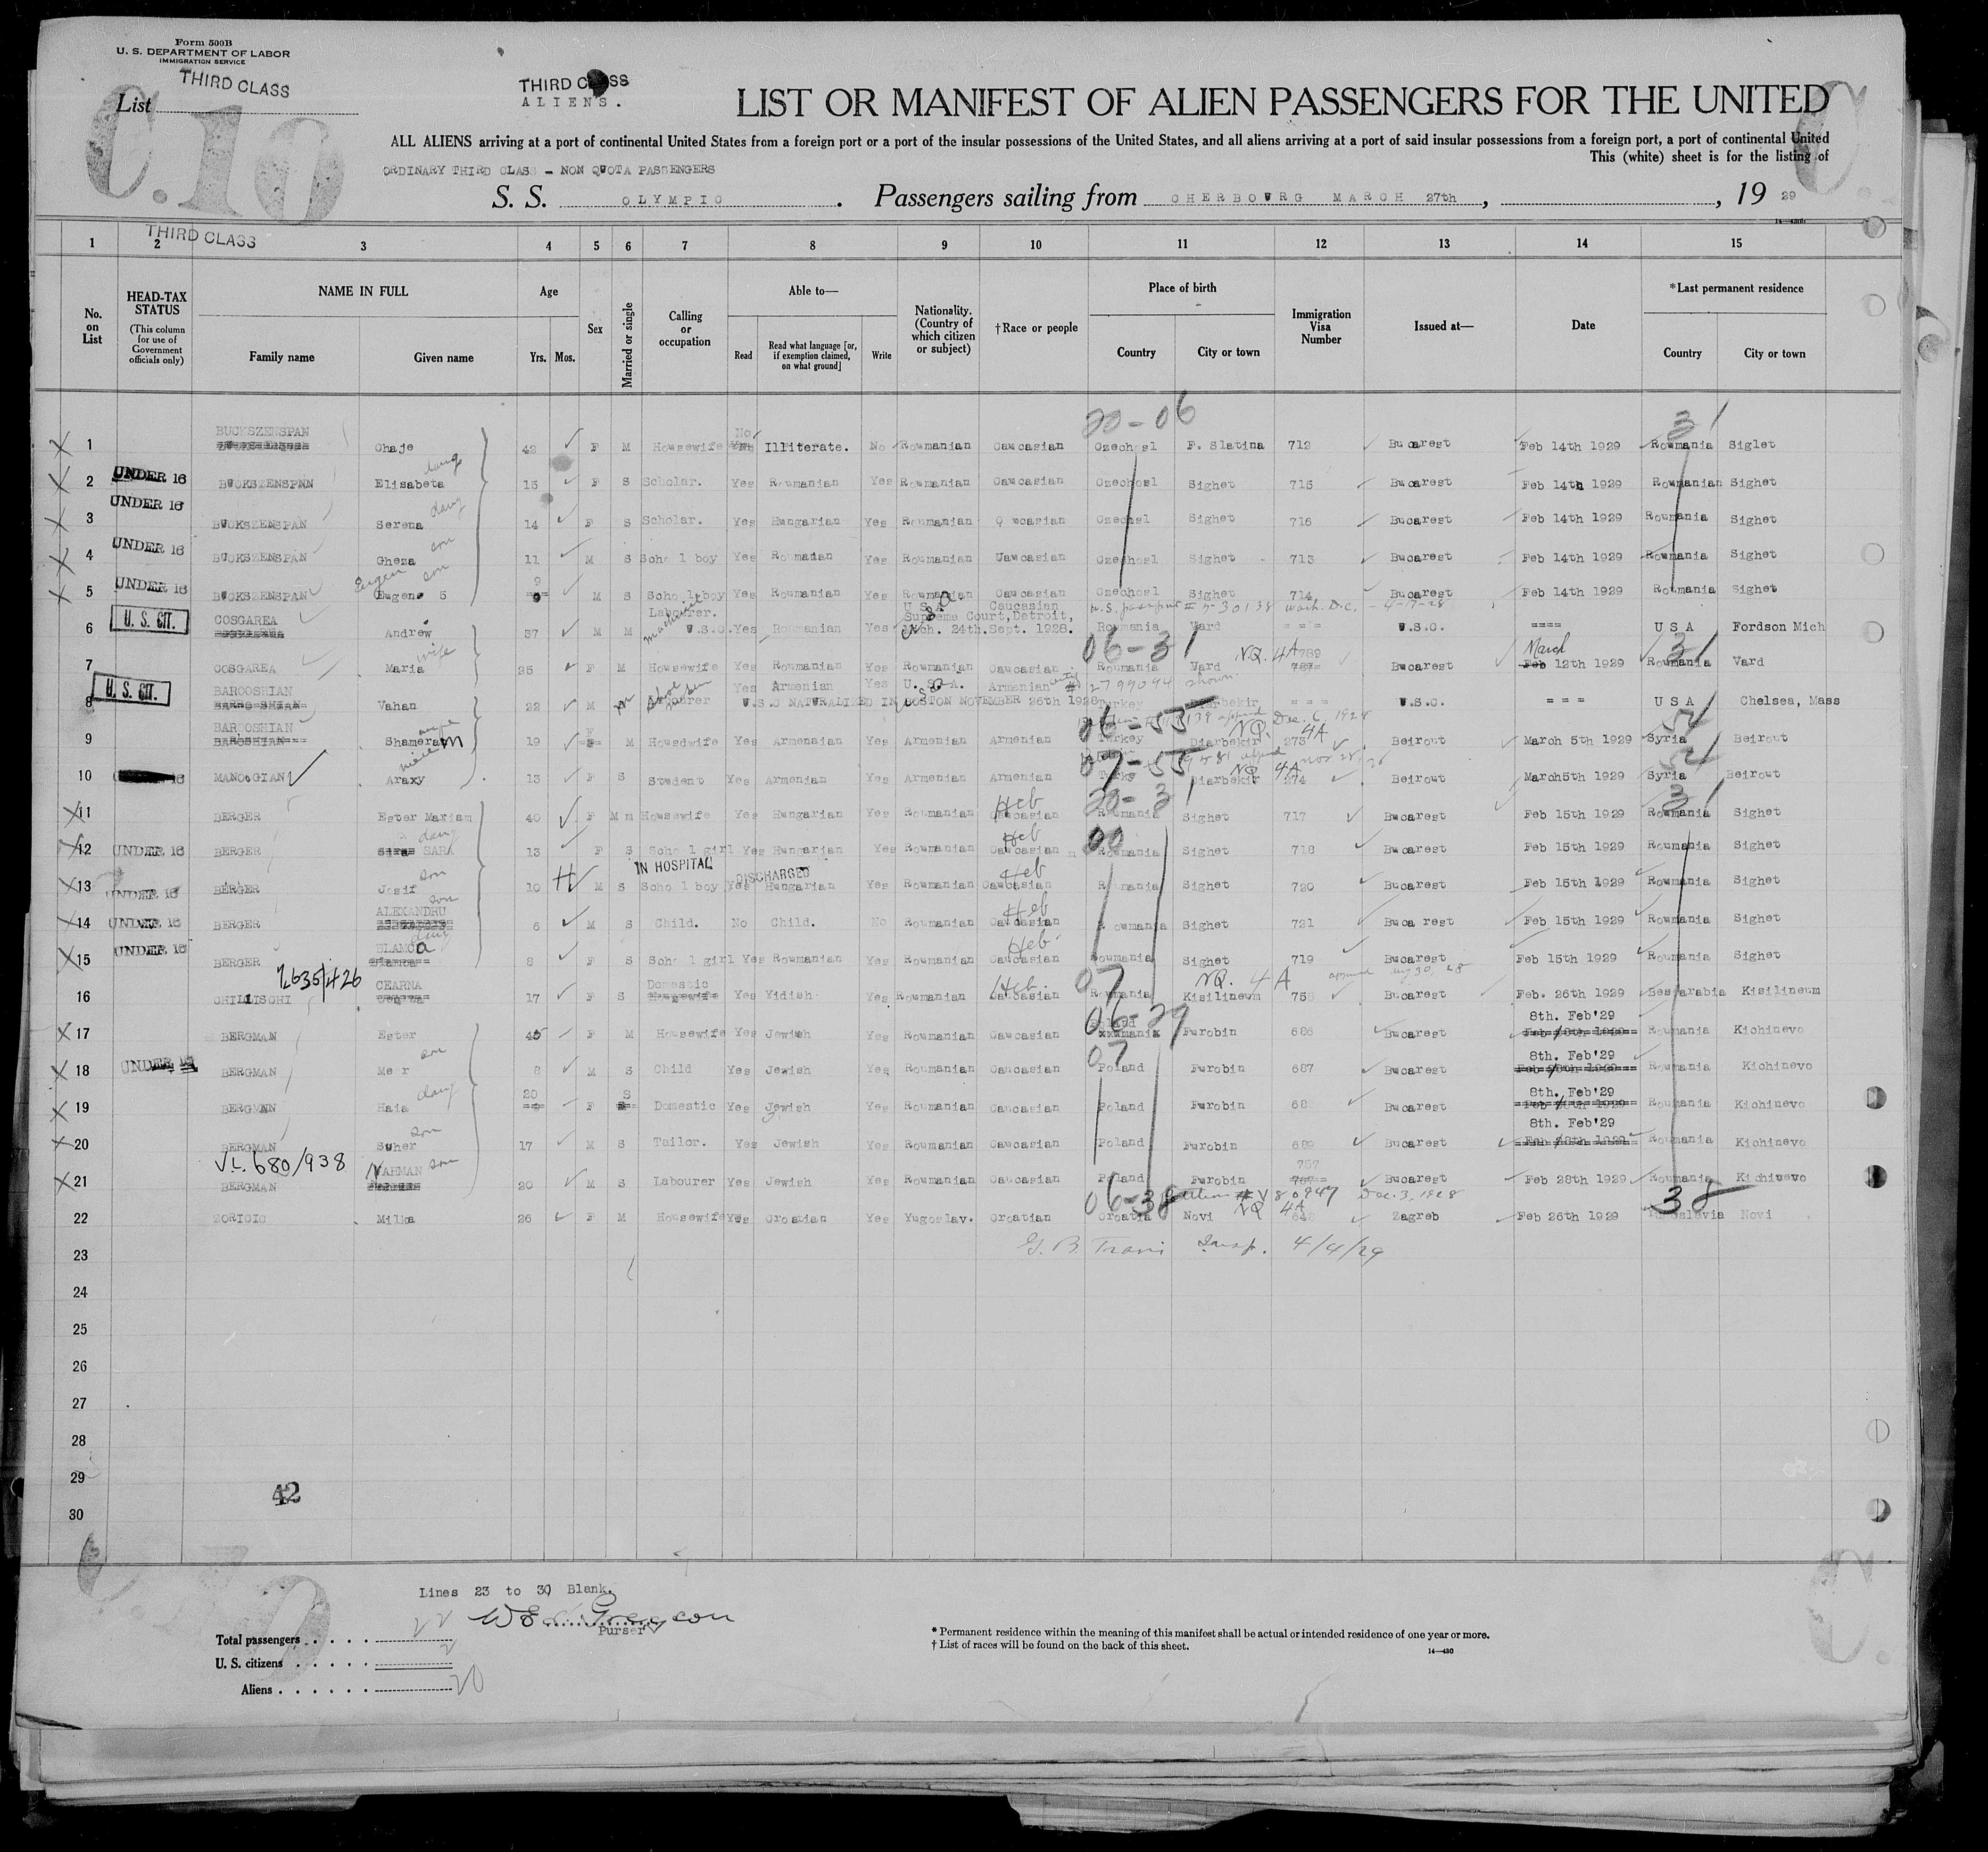 Form 500B
U. S. DEPARTMENT OF LABOR
IMMIGRATION SERVICE
THIRD CLASS
List
C.10
THIRD CLASS
ALIENS.
LIST OR MANIFEST OF ALIEN PASSENGERS FOR THE UNITED
ALL ALIENS arriving at a port of continental United States from a foreign port or a port of the insular possessions of the United States, and all aliens arriving at a port of said insular possessions from a foreign port, a port of continental United
This (white) sheet is for the listing of
ORDINARY THIRD CLASS - NON QUOTA PASSENGERS
S. S. OLYMPIC. Passengers sailing from CHERBOURG MARCH 27th, , 19 29
THIRD CLASS
1 2 3 4 5 6 7 8 9 10 11 12 13 14 15
No. on List
HEAD-TAX STATUS (This column for use of Government officials only)
NAME IN FULL
Family name Given name
Age
Yrs. Mos.
Sex
Married or single
Calling or occupation
Able to—
Read Read what language [or, if exemption claimed, on what ground] Write
Nationality. (Country of which citizen or subject)
†Race or people
Place of birth
Country City or town
Immigration Visa Number
Issued at—
Date
*Last permanent residence
Country City or town
20-06 31
BUCKSZENSPAN No
1 Chaje 42 F M Housewife Illiterate. No Roumanian Caucasian Czechosl F. Slatina 712 Bucarest Feb 14th 1929 Roumania Siglet
daug
2 UNDER 16 BUCKSZENSPNN Elisabeta 15 F S Scholar. Yes Roumanian Yes Roumanian Caucasian Czechosl Sighet 715 Bucarest Feb 14th 1929 Roumanian Sighet
daug
3 UNDER 16 BUCKSZENSPAN Serena 14 F S Scholar. Yes Hungarian Yes Roumanian Caucasian Czechosl Sighet 716 Bucarest Feb 14th 1929 Roumania Sighet
son
4 UNDER 16 BUCKSZENSPAN Gheza 11 M S School boy Yes Roumanian Yes Roumanian Caucasian Czechosl Sighet 713 Bucarest Feb 14th 1929 Roumania Sighet
Eugen son 9
5 UNDER 16 BUCKSZENSPAN Eugene 5 M S School boy Yes Roumanian Yes Roumanian Caucasian Czechosl Sighet 714 Bucarest Feb 14th 1929 Roumania Sighet
U. S. CIT. COSGAREA Labourer. machinist U S A Caucasian U.S. passport # 530138 Wash. D.C. - 4-17-28
Supreme Court, Detroit,
6 Andrew 37 M M U.S.C. Yes Roumanian Yes Mich. 24th.Sept. 1928. Roumania Vard = = = U.S.C. ==== U S A Fordson Mich
wife 06-31 NQ. 4A 789 March 31
7 COSGAREA Maria 25 F M Housewife Yes Roumanian Yes Roumanian Caucasian Roumania Vard 787 Bucarest Feb 12th 1929 Roumania Vard
U. S. CIT. BAROOSHIAN Yes Armenian Yes U. S. A. Armenian # 2799094 shown
8 Vahan 22 M M Labourer U.S.C NATURALIZED IN BOSTON NOVEMBER 26th 1928 Turkey Diarbekir = = = U.S.C. = = = U S A Chelsea, Mass
BAROOSHIAN 06-55 NQ. 4A Dec. 6, 1928
9 BAROSHIAN Shameram 19 F M Housdwife Yes Armenaian Yes Armenian Armenian Turkey Diarbekir 273 Beirout March 5th 1929 Syria Beirout
niece 07-55 NQ 4A
10 MANOOGIAN Araxy 13 F S Student Yes Armenian Yes Armenian Armenian Turkey Diarbekir 274 Beirout March5th 1929 Syria Beirout
Heb 20-31 31
11 BERGER Ester Mariam 40 F M m Housewife Yes Hungarian Yes Roumanian Caucasian Roumania Sighet 717 Bucarest Feb 15th 1929 Roumania Sighet
daug Heb
12 UNDER 16 BERGER SARA 13 F S School girl Yes Hungarian Yes Roumanian Caucasian Roumania Sighet 718 Bucarest Feb 15th 1929 Roumania Sighet
son IN HOSPITAL DISCHARGED Heb
13 UNDER 16 BERGER Josif 10 H M S School boy Yes Hungarian Yes Roumanian Caucasian Roumania Sighet 720 Bucarest Feb 15th 1929 Roumania Sighet
son ALEXANDRU Heb
14 UNDER 16 BERGER 6 M S Child. No Child. No Roumanian Caucasian Roumania Sighet 721 Bucarest Feb 15th 1929 Roumania Sighet
daug BLANCA Heb
15 UNDER 16 BERGER 8 F S School girl Yes Roumanian Yes Roumanian Caucasian Roumania Sighet 719 Bucarest Feb 15th 1929 Roumania Sighet
635/426 CEARNA Domestic Heb. 07 NQ. 4A Aug 30, 28
16 CHILISCHI 17 F S Housewife Yes Yidish Yes Roumanian Caucasian Roumania Kisilineum 758 Bucarest Feb. 26th 1929 Bessarabia Kisilineum
06-29 Poland 8th. Feb'29
17 BERGMAN Ester 45 F M Housewife Yes Jewish Yes Roumanian Caucasian Furobin 686 Bucarest Roumania Kichinevo
son 07 8th. Feb'29
18 UNDER 16 BERGMAN Meer 8 M S Child Yes Jewish Yes Roumanian Caucasian Poland Furobin 687 Bucarest Roumania Kichinevo
daug 20 S 8th. Feb'29
19 BERGMNN Haia F Domestic Yes Jewish Yes Roumanian Caucasian Poland Furobin 68 Bucarest Roumania Kichinevo
son 8th. Feb'29
20 BERGMAN Suher 17 M S Tailor. Yes Jewish Yes Roumanian Caucasian Poland Furobin 689 Bucarest Roumania Kichinevo
V.L. 680/938 NAHMAN son 757
21 BERGMAN 20 M S Labourer Yes Jewish Yes Roumanian Caucasian Poland Furobin Bucarest Feb 28th 1929 Roumania Kichinevo
06-38 Petition # V80947 Dec. 3, 1928 NQ 4A 38
22 ZORICIC Milka 26 F M Housewife Yes Croatian Yes Yugoslav. Croatian Croatia Novi 646 Zagreb Feb 26th 1929 Yugoslavia Novi
23 G. B. Trani Insp. 4/4/29
24
25
26
27
28
29
30
42
Lines 23 to 30 Blank.
Purser
Total passengers 22
U. S. citizens 2
Aliens 20
* Permanent residence within the meaning of this manifest shall be actual or intended residence of one year or more.
† List of races will be found on the back of this sheet.
14—430